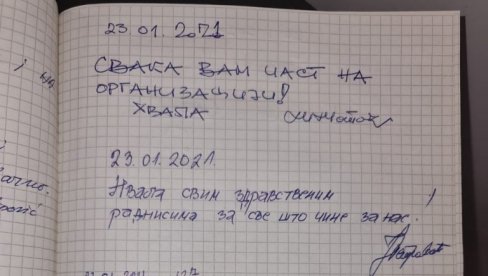 23.01.2021
СВАКА ВАМ ЧАСТ НА
ОРГАНИЗАЦИЈИ!
ХВАЛА
23.01.2021.
Хвала свим здравственим
радницима за све што чине за нас. !